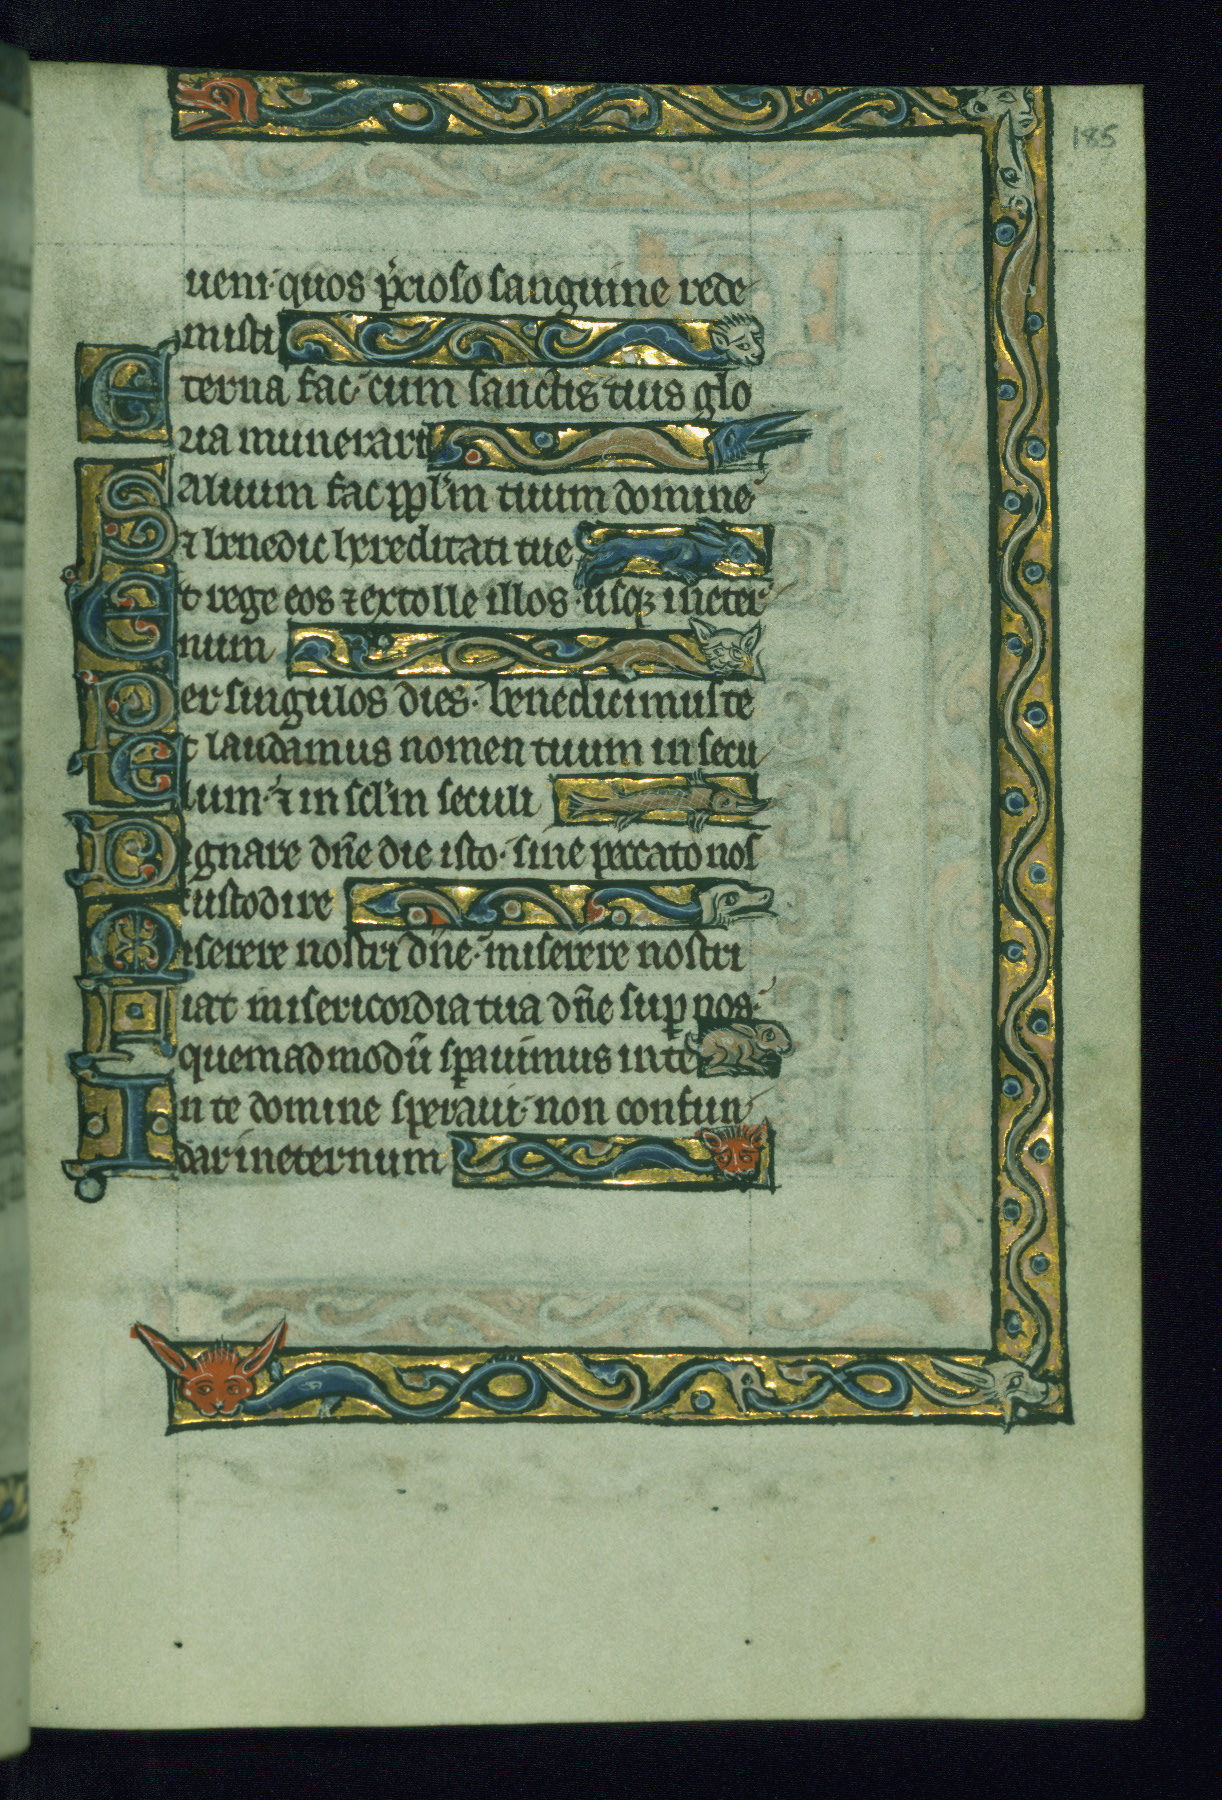 185
ueni·quos p̄cioso sanguine rede
misti
Eterna fac·cum sanctis tuis glo
ria munerari
Saluum fac ppl'm tuum domine·
⁊ benedic hereditati tue
Et rege eos ⁊ extolle illos·usqꝫ in eter
num
Per singulos dies·benedicimus te
Et laudamus nomen tuum in secu
lum·⁊ in scl'm seculi
Dignare dn̄e die isto·sine peccato nos
custodire
Miserere nostri dn̄e·miserere nostri
Fiat misericordia tua dn̄e sup nos·
quemadmodū sꝑauimus in te
In te domine speraui·non confun
dar in eternum